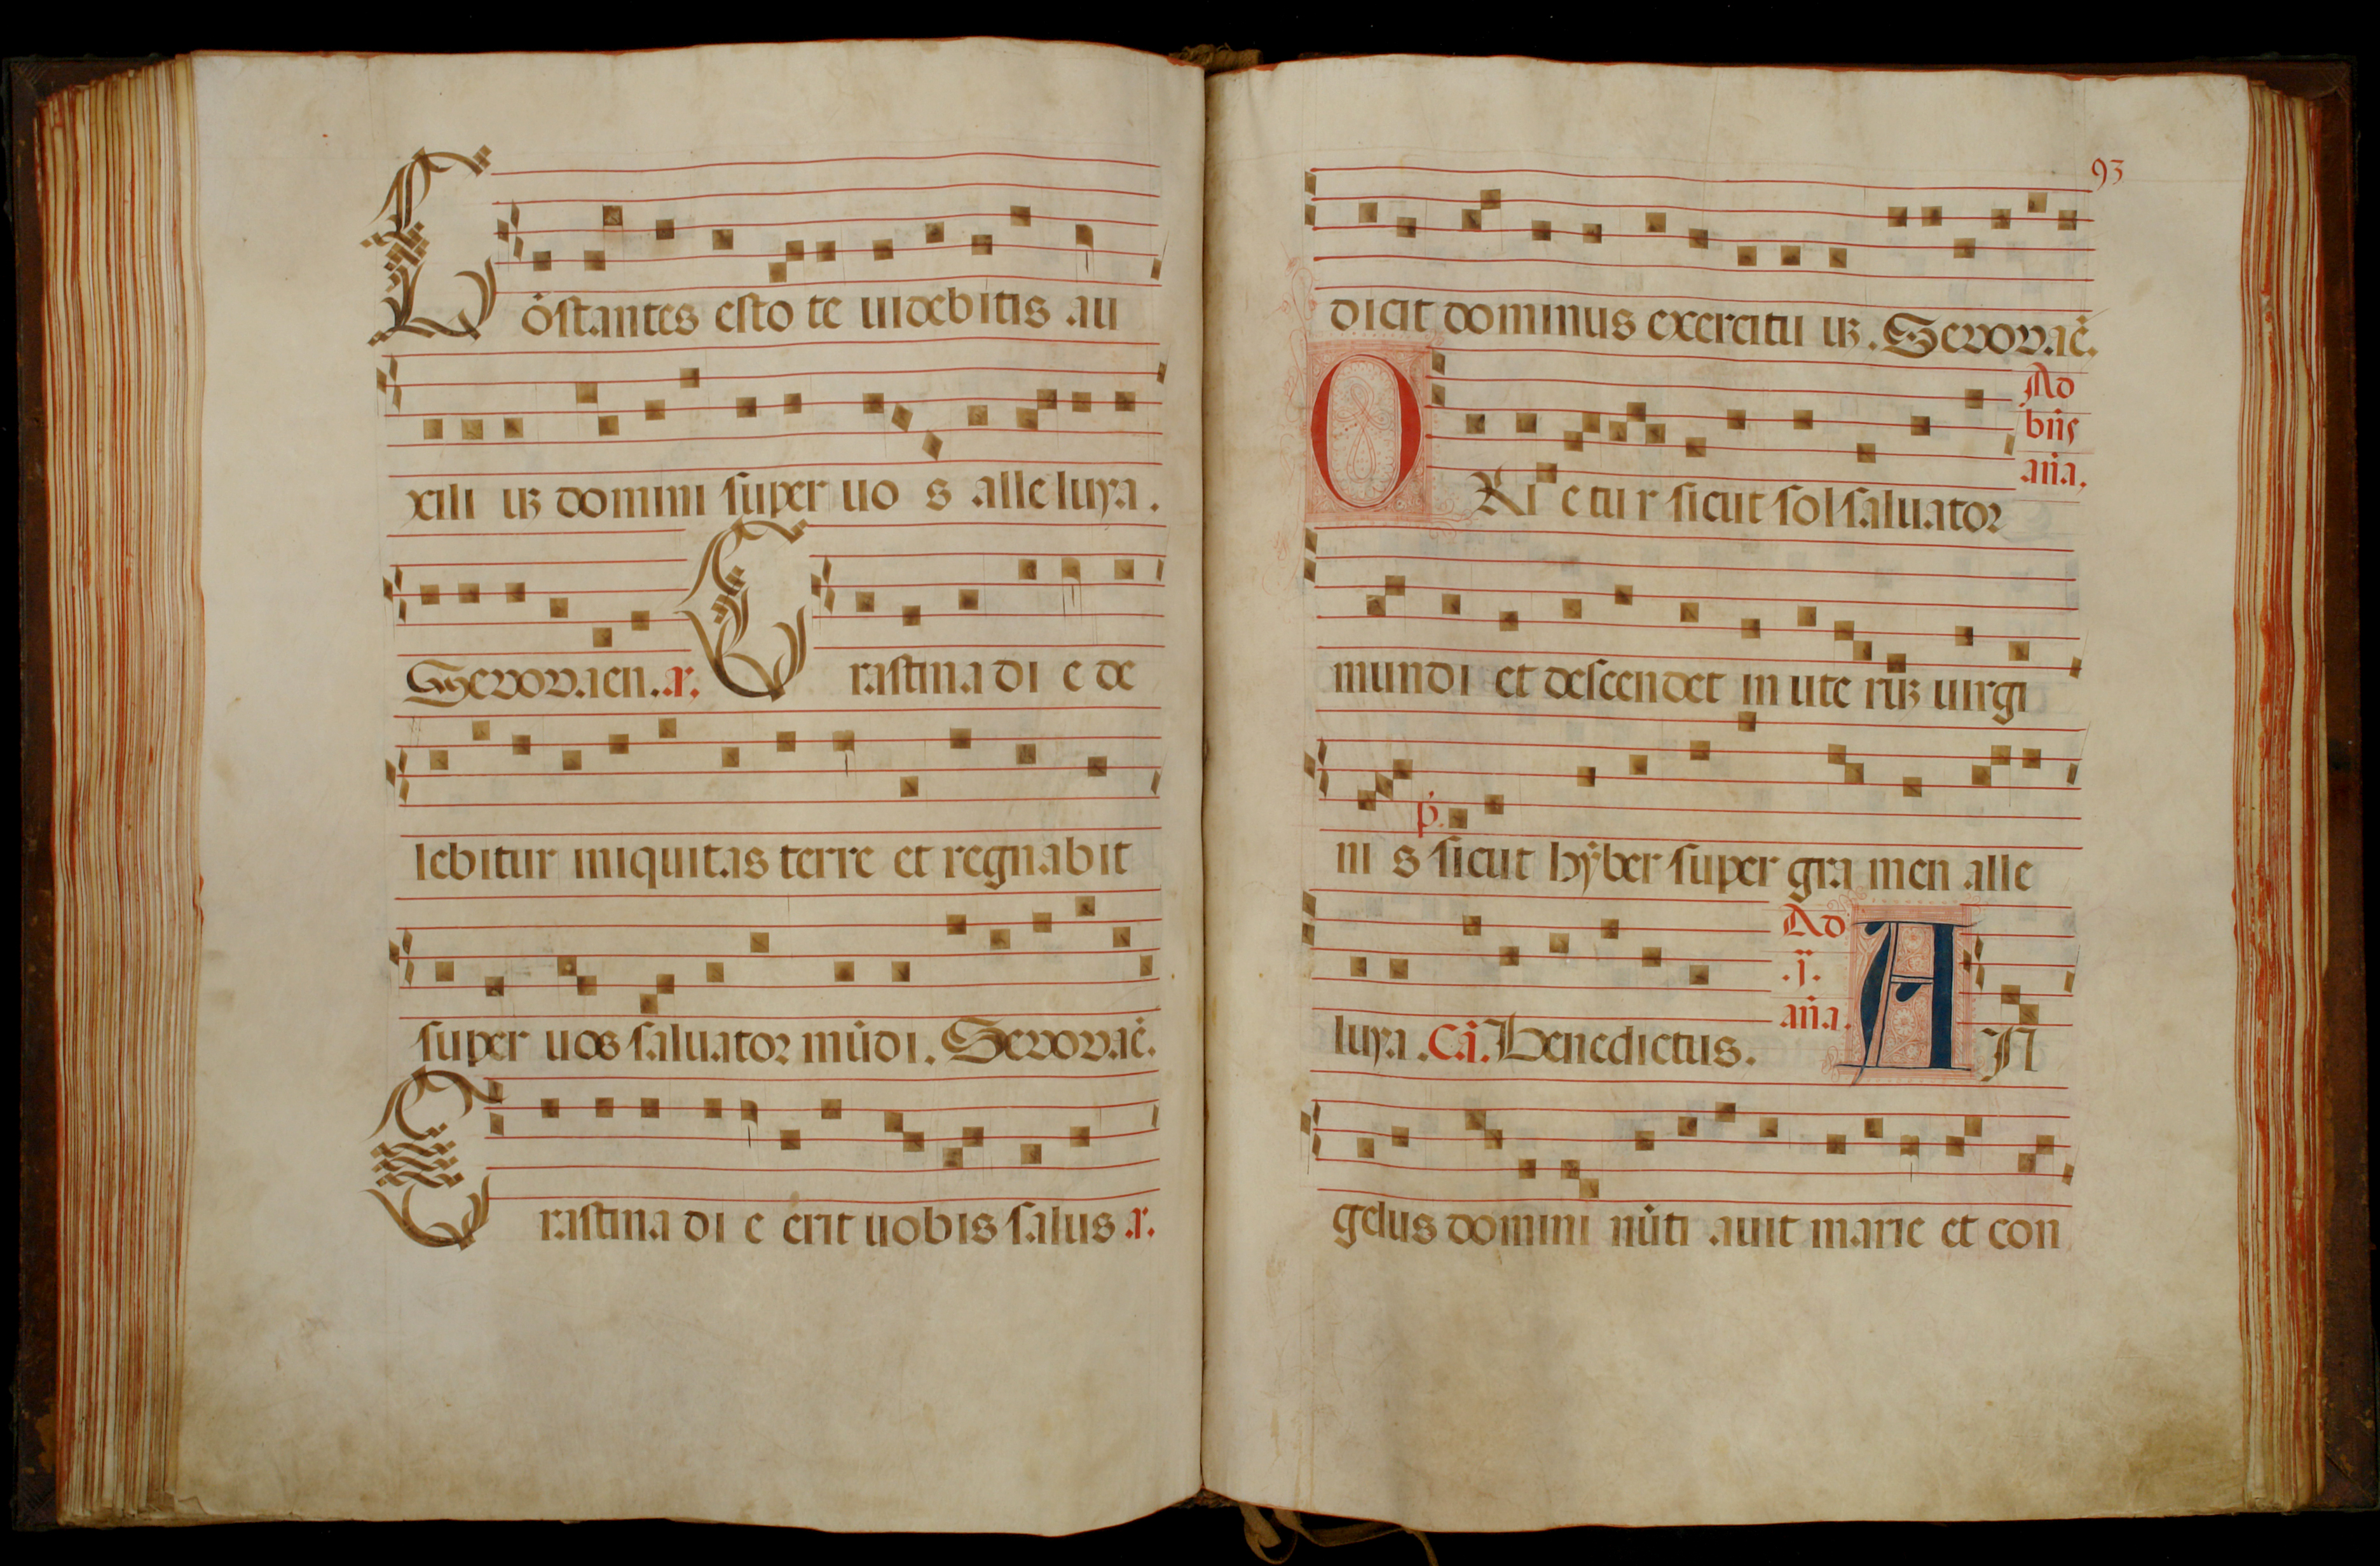 Cōstantes estote uidebitis au
xiliuʒ domini super uos alleluya.
Seuouaen. a. Crastina die de
lebitur iniquitas terre et regnabit
super uos saluator mūdi. Seuouaē.
Crastina die erit uobis salus a.
93
dicit dominus exercituuʒ. Seuouaē.
Ad
bn̄s
an̄a.
ORietur sicut sol saluator
mundi et descendet in uteruʒ uirgi
p̄.
nis sicut hyber super gramen alle
Ad
.j.
an̄a.
luya. Cā. Benedictus. AN
gelus domini nūtiauit marie et con